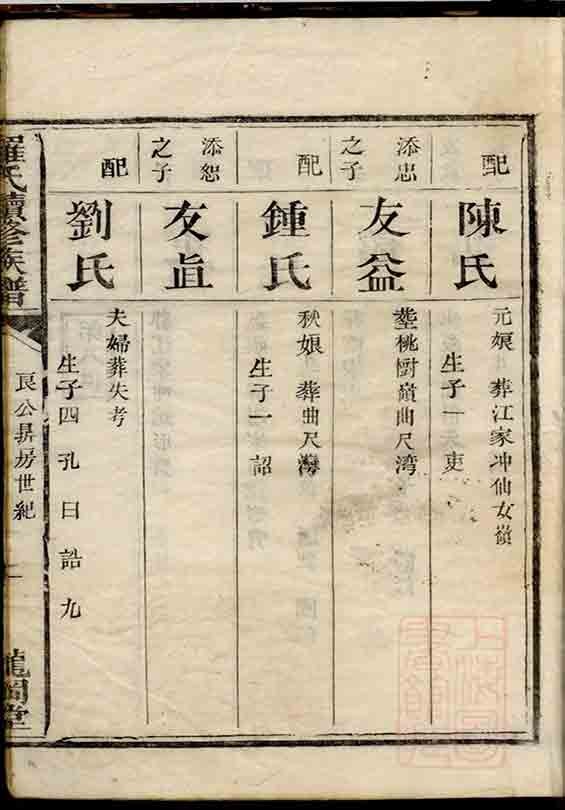 配
陳氏
元娘 葬江家冲仙女嶺
生子一天吏
添忠
之子
友益
塟桃樹嶺曲尺湾
配
鍾氏
秋娘 葬曲尺灣
生子一詔
添恕
之子
友眞
配
劉氏
夫婦葬失考
生子四孔曰誥九
羅氏續修族譜
良公昇房世紀
一